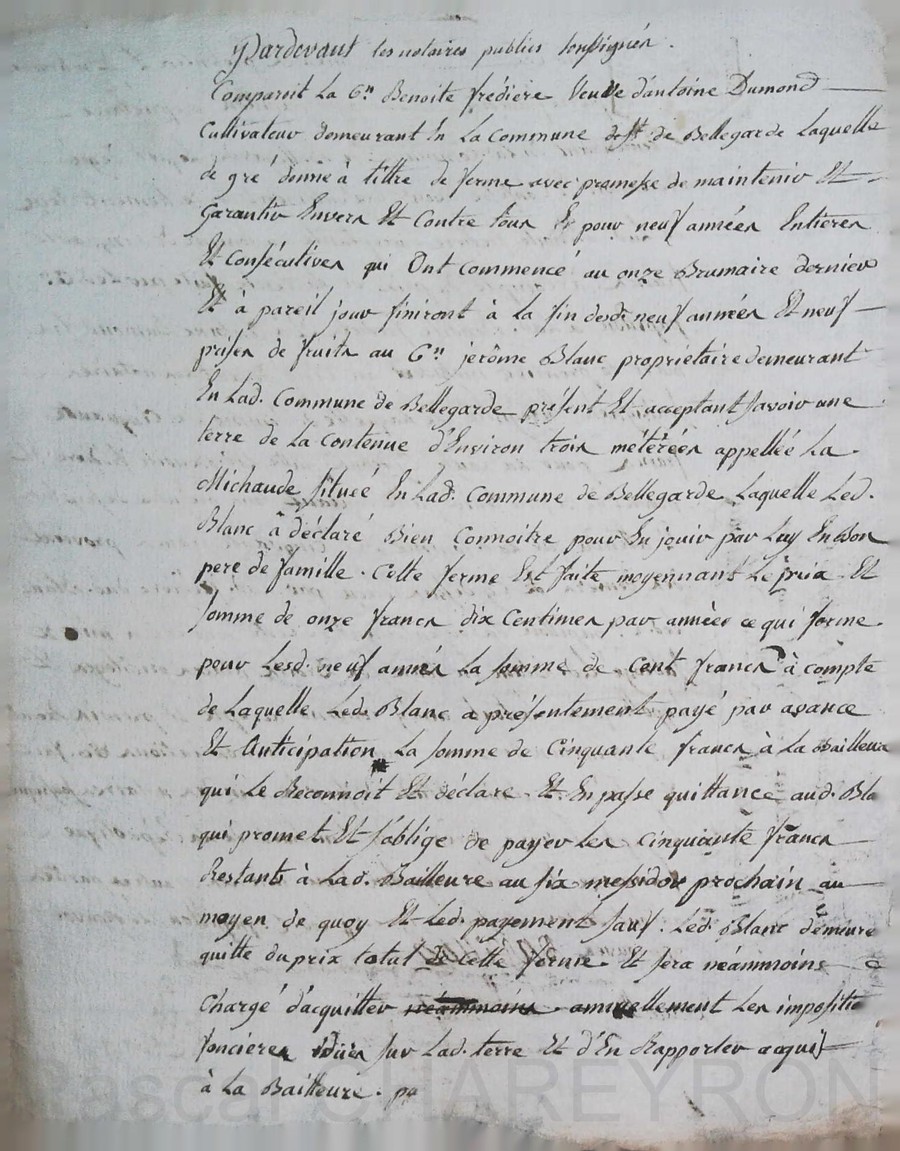 Pardevant les notaires publics soussignés.
Comparoit La C.ne Benoite fredière Veuve d'antoine Dumond
Cultivateur demeurant En La Commune de st de Bellegarde Laquelle
de gré donne à tittre de ferme avec promesse de maintenir Et
garantir Envers Et Contre tous Et pour neuf années Entieres
Et consécutives qui Ont commencé au onze Brumaire dernier
Et à pareil jour finiront à la fin desd. neuf années Et neuf
prises de fruits au C.en jerôme Blanc propriétaire demeurant
En Lad. Commune de Bellegarde présent Et acceptant savoir une
terre de La contenue d'Environ trois métérées appellée La
Michaude située En Lad. Commune de Bellegarde Laquelle Led.
Blanc à déclaré Bien Connoitre pour En jouir par Luy En Bon
pere de famille. Cette ferme Est faite moyennant Le prix Et
somme de onze francs dix Centimes par années ce qui forme
pour Lesd. neuf années La somme de Cent francs à compte
de Laquelle Led. Blanc a présentement payé par avance
Et Anticipation La somme de Cinquante francs à La Bailleure
qui Le Reconnoit Et déclare Et En passe quittance aud. Bla
qui promet Et s'oblige de payer Les Cinquante francs
Restants à Lad. Bailleure au six messidor prochain au
moyen de quoy Et Led. payement sauf. Led. Blanc demeure
quitte du prix total de Cette ferme Et sera néammoins
Chargé d'acquitter néammoins annuellement Les impositio
foncieres dües sur Lad. terre Et d'En Rapporter acquit
à La Bailleure. pa
Pascal CHAREYRON